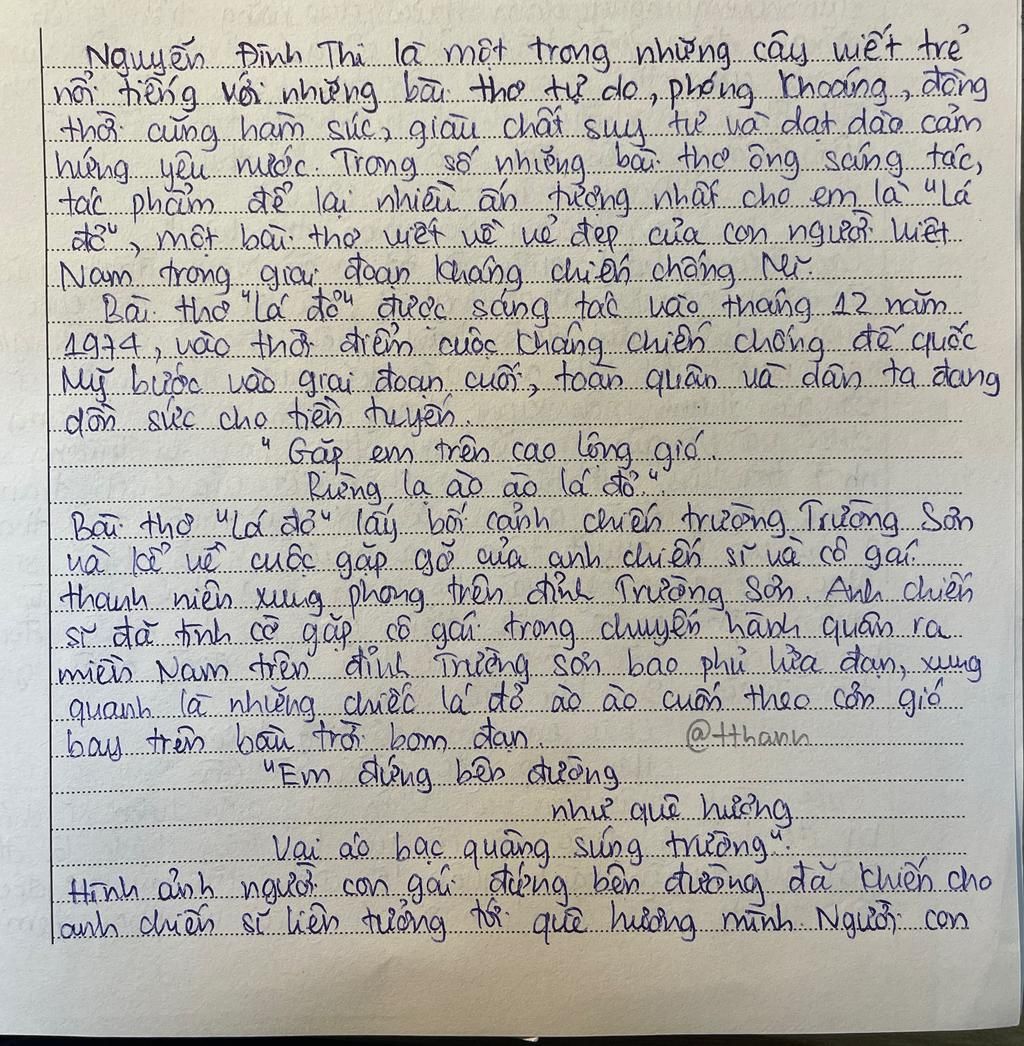 Nguyễn Đình Thi là một trong những cây viết trẻ
nổi tiếng với những bài thơ tự do, phóng khoáng, đồng
thời cũng hàm súc, giàu chất suy tư và dạt dào cảm
hứng yêu nước. Trong số những bài thơ ông sáng tác,
tác phẩm để lại nhiều ấn tượng nhất cho em là "Lá
đỏ", một bài thơ viết về vẻ đẹp của con người Việt
Nam trong giai đoạn kháng chiến chống Mĩ.
Bài thơ "Lá đỏ" được sáng tác vào tháng 12 năm
1974, vào thời điểm cuộc kháng chiến chống đế quốc
Mỹ bước vào giai đoạn cuối, toàn quân và dân ta đang
dồn sức cho tiền tuyến.
"Gặp em trên cao lộng gió.
Rừng lạ ào ào lá đỏ".
Bài thơ "Lá đỏ" lấy bối cảnh chiến trường Trường Sơn
và kể về cuộc gặp gỡ của anh chiến sĩ và cô gái
thanh niên xung phong trên đỉnh Trường Sơn. Anh chiến
sĩ đã tình cờ gặp cô gái trong chuyến hành quân ra
miền Nam trên đỉnh Trường Sơn bao phủ lửa đạn, xung
quanh là những chiếc lá đỏ ào ào cuốn theo cơn gió
bay trên bầu trời bom đạn.
@tthanh
"Em đứng bên đường
như quê hương
Vai áo bạc quàng súng trường".
Hình ảnh người con gái đứng bên đường đã khiến cho
anh chiến sĩ liên tưởng tới quê hương mình. Người con